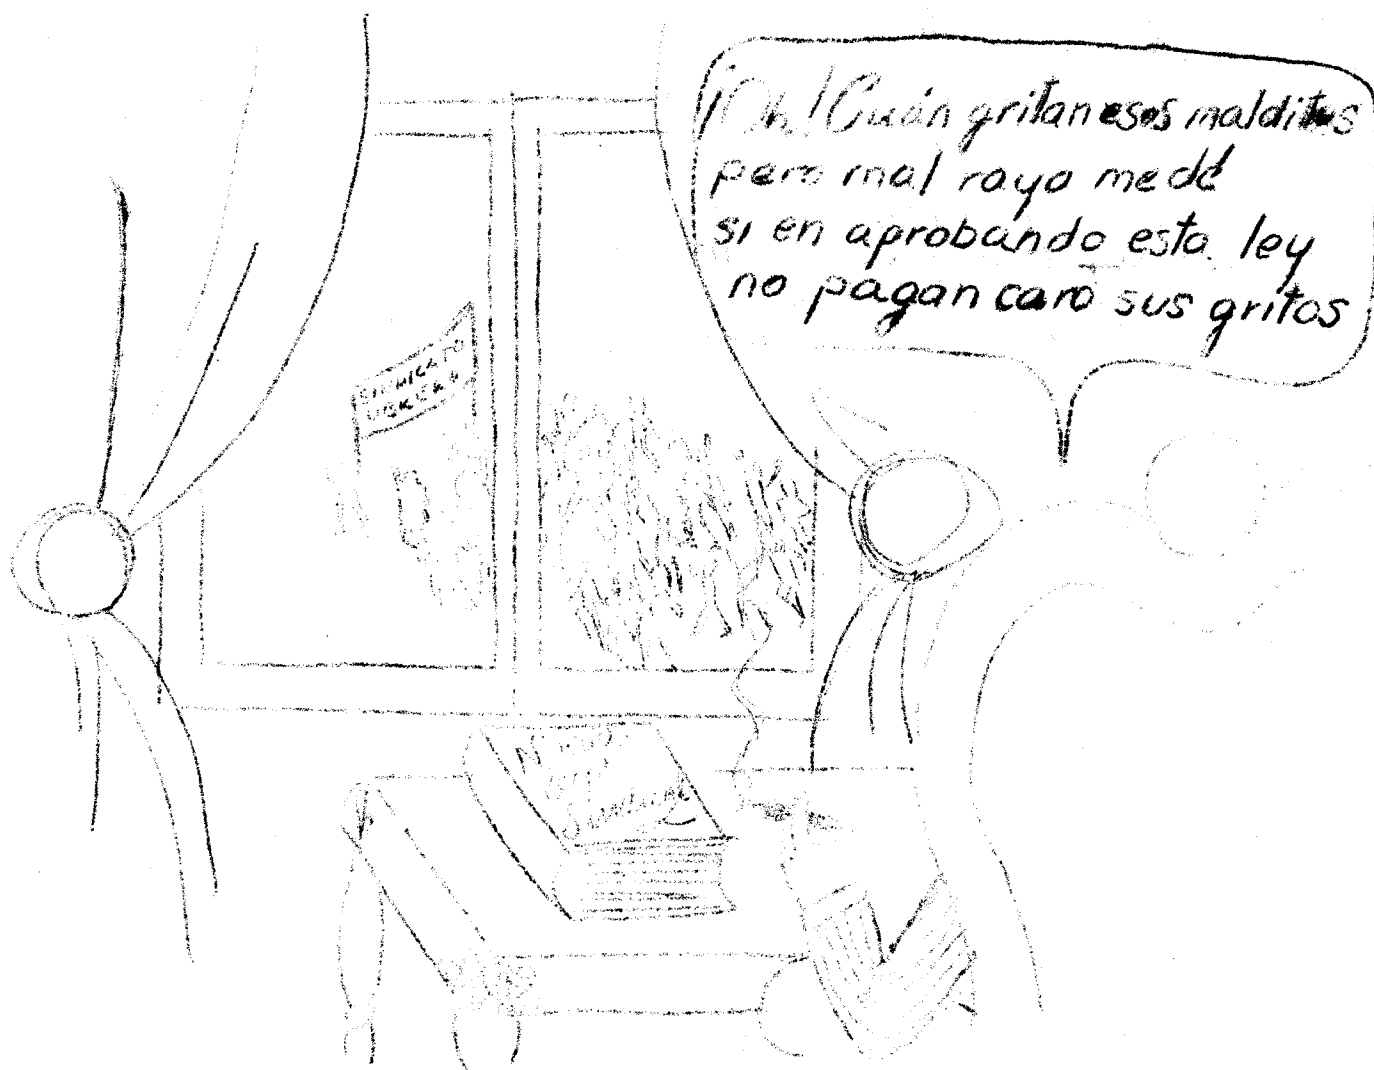 ¡Oh! Cuán gritan esos malditos
pero mal rayo me dé
si en aprobando esta ley
no pagan caro sus gritos
SINDICATO
OBRERO